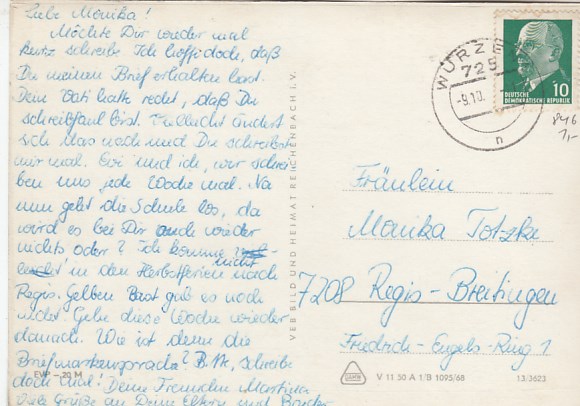 Liebe Monika!
Möchte Dir wieder mal
kurz schreibe Ich hoffe doch, daß
Du meinen Brief erhalten hast.
Dein Vati hatte recht, daß Du
schreibfaul bist. Vielleicht ändert
sich das noch und Du schreibst
mir mal. Evi und ich, wir schrei
ben uns jede Woche mal. Na
nun geht die Schule los, da
wird es bei Dir auch wieder
nichts oder? Ich komme
nicht in den Herbstferien nach
Regis. Gelben Bast gab es noch
nicht Gehe diese Woche wieder
danach. Wie ist denn die
Briefmarkensprache? Bitte, schreibe
doch mal! Deine Freundin Martina
Viele Grüße an Deine Eltern und Bruder
EVP -,20 M
VEB BILD UND HEIMAT REICHENBACH I. V.
WURZEN
725
-9.10.
n
DEUTSCHE
DEMOKRATISCHE REPUBLIK
10
846
1,-
Fräulein
Monika Totzke
7208 Regis-Breitingen
Friedrich-Engels-Ring 1
V 11 50 A 1/B 1095/68
13/3623